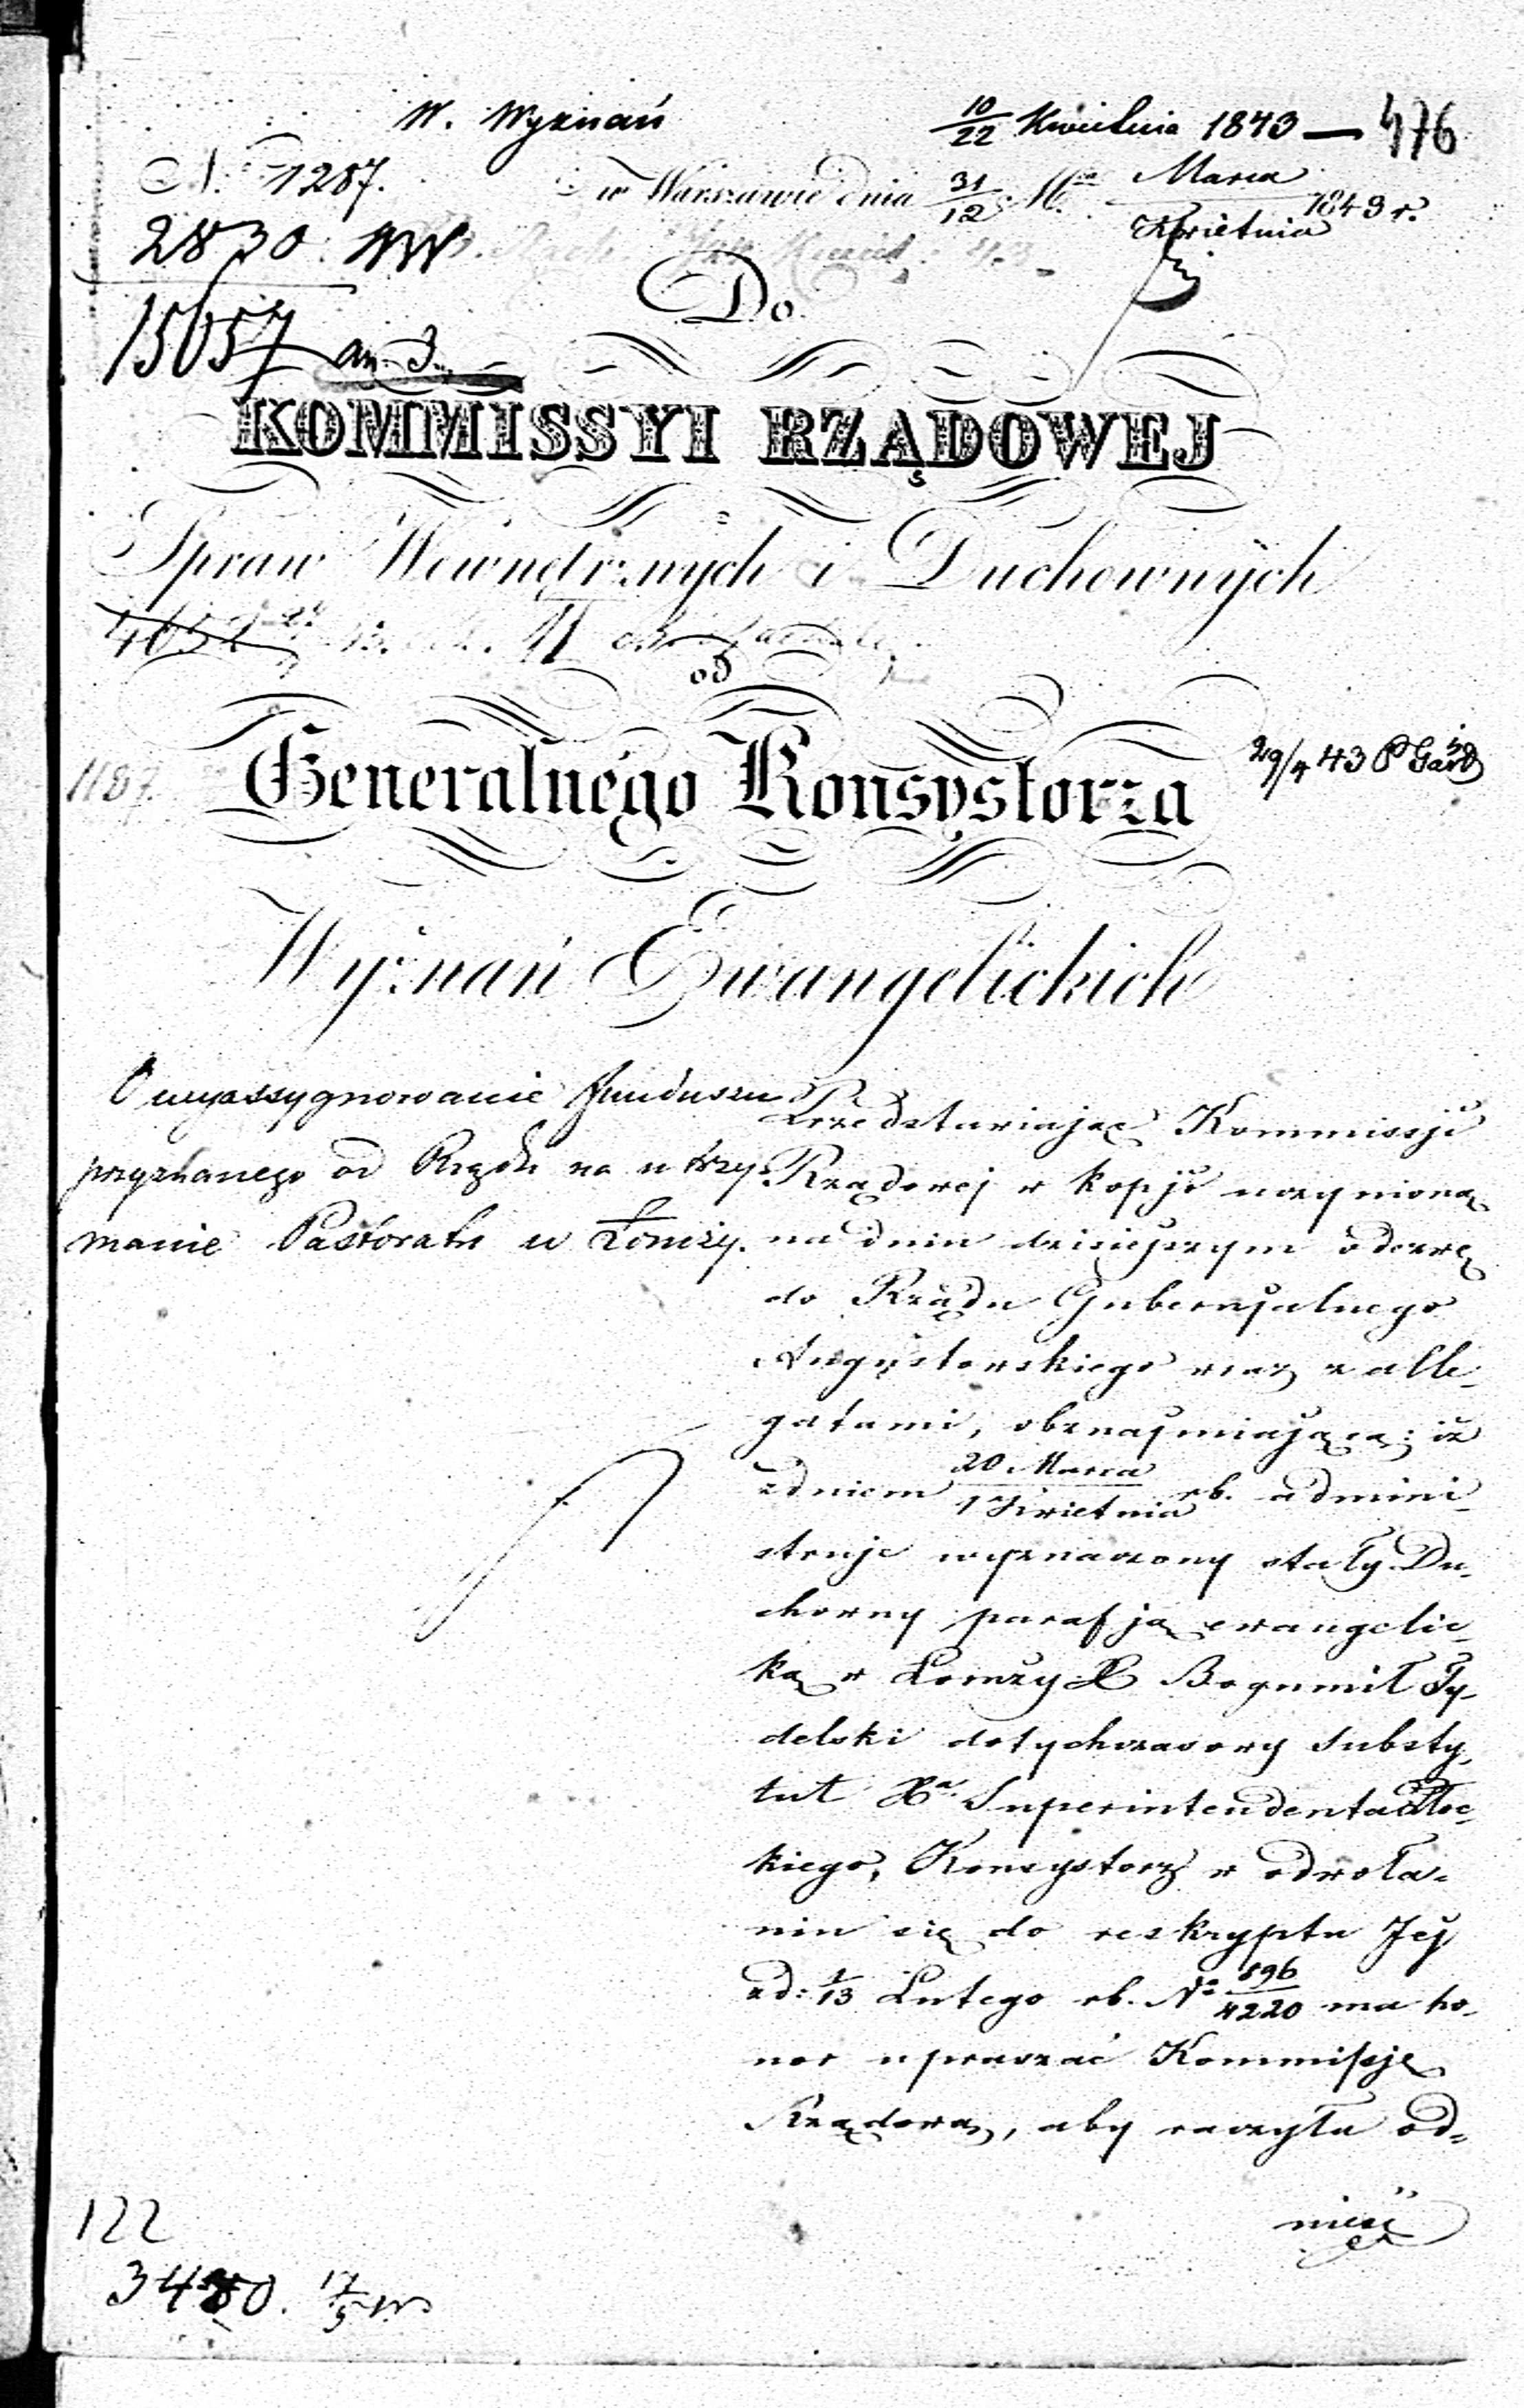 W. Wyznań
10/22 Kwietnia 1843 — 476
N. 1287.
w Warszawie dnia 31/12 M. Marca/Kwietnia 1843 r.
2830
Do
15657
KOMMISSYI RZĄDOWEJ
Spraw Wewnętrznych i Duchownych
od
1187.
Generalnego Konsystorza
29/4 43
Wyznań Ewangelickich
O wyassygnowanie funduszu
przyznanego od Rządu na utrzy-
manie Pastoratu w Łomży.
Przedstawiając Kommissji
Rządowej w kopji uczynioną
na dniu dzisiejszym odezwę
do Rządu Gubernjalnego
Augustowskiego wraz z alle-
gatami, oznajmiającą: iż
z dniem 20 Marca/1 Kwietnia rb. admini-
struje wyznaczony stały Du-
chowny parafją ewangelic-
ką w Łomży X Bogumił Ty-
delski dotychczasowy Substy-
tut Xa. Superintendenta Płoc-
kiego, Konsystorz w odwoła-
niu się do reskryptu Jej
z d: 1/13 Lutego rb. No 896/4220 ma ho-
nor upraszać Kommissję
Rządową, aby raczyła od-
nieść
122
3480. 17/5